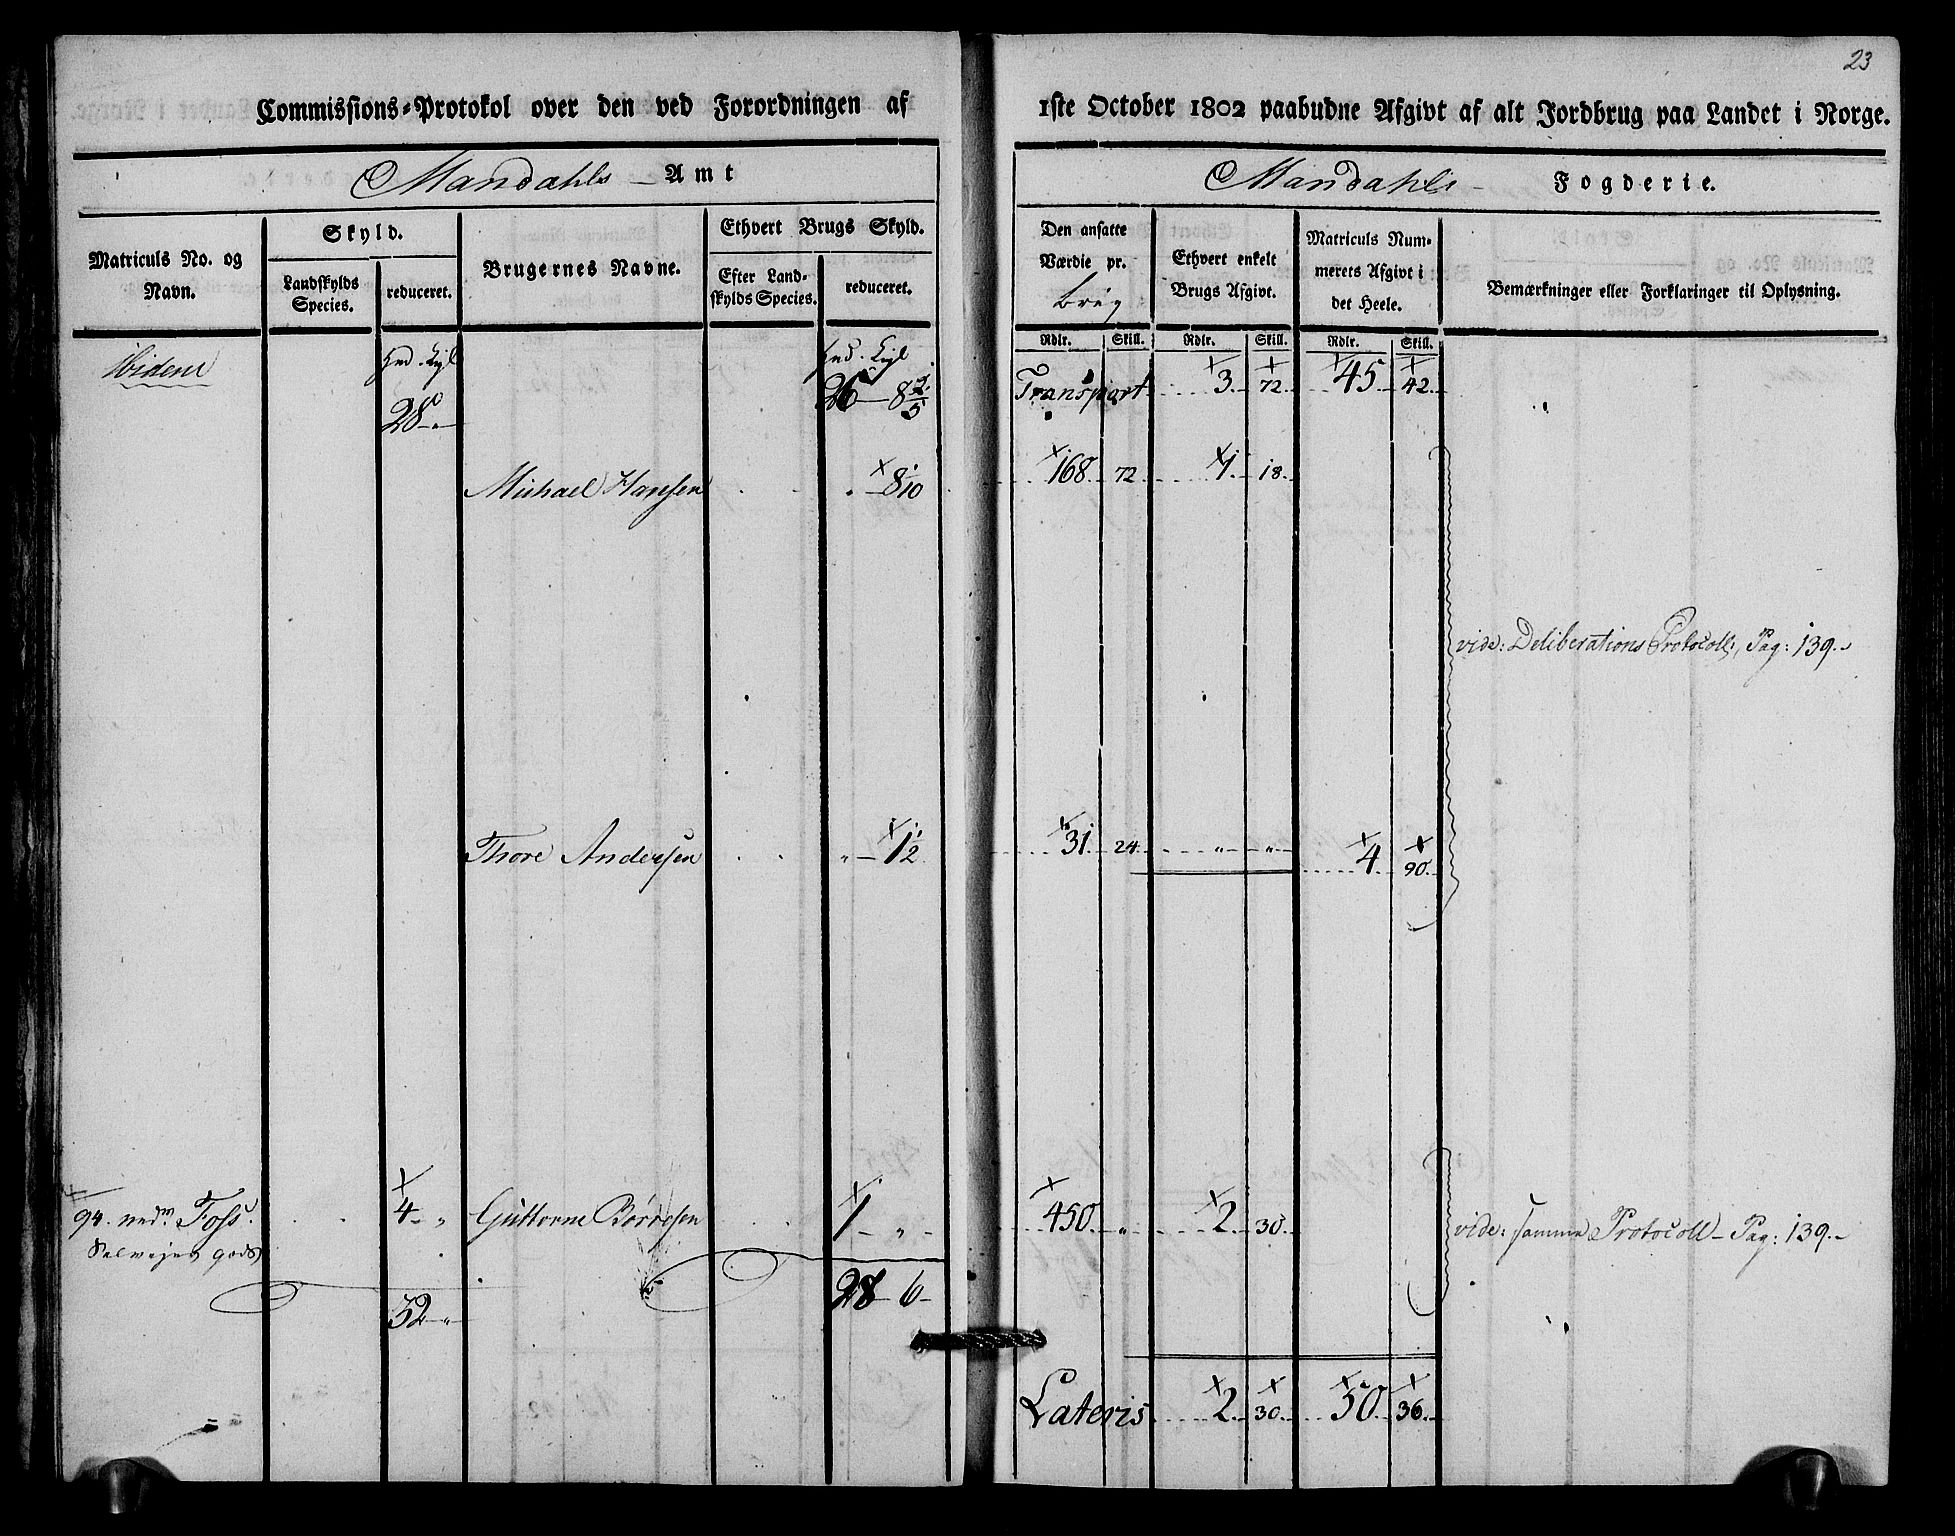 23
Commissions-Protokol over den ved Forordningen af 1ste October 1802 paabudne Afgivt af alt Jordbrug paa Landet i Norge.
Mandahls Amt
Mandahls Fogderie.
Matriculs No. og Navn.
Skyld.
Landskylds Species.
reduceret.
Brugernes Navne.
Ethvert Brugs Skyld.
Efter Landskylds Species.
reduceret.
Den ansatte Værdie pr. brug
Ethvert enkelt Brugs Afgivt.
Matriculs Nummerets Afgivt i det Heele.
Bemærkninger eller Forklaringer til Oplysning.
Rdlr. Skill. Rdlr. Skill. Rdlr. Skill.
Ibidem
28
26 – 8 2/5
Transport 3. 72. 45. 42.
Michael Hansen " – 8 1/10 168. 72. 1. 18.
vide: Deliberations Protocoll, Pag: 139.
Thore Andersen " – 1 1/2 31. 24. " " 4 90.
94. nedre Foss. 4 – " Guttorm Börresen 1 – " – 450. " 2. 30. vide: samme Protocoll – Pag: 139.
gods
32 – "
28 – 6 –
Lateris 2. 30. 50. 36.